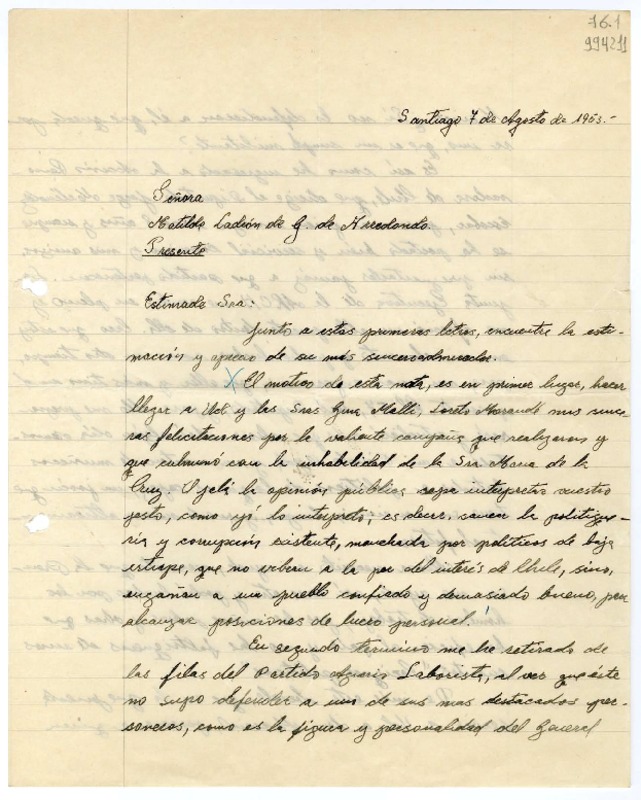 76.1
994211
Santiago 7 de Agosto de 1953.-
Señora
Matilde Ladrón de G. de Arredondo.
Presente
Estimada Sra:
Junto a estas primeras letras, encuentre la esti-
mación y aprecio de su más sincero admirador.
X El motivo de esta nota, es en primer lugar, hacer
llegar a Ud. y las Sras Malli, Loreto Morandé mis since-
ras felicitaciones por la valiente campaña que realizaron y
que culminó con la inhabilidad de la Sra Maria de la
Cruz. Ojalá la opinión pública sepa interpretar vuestro
gesto, como yó lo interpreto; es decir, sanear la politique-
ria y corrupción existente, manchada por politicos de baja
estirpe, que no velan a la par del interés de Chile, sino,
engañan a un pueblo confiado y demasiado bueno, para
alcanzar posiciones de lucro personal.
En segundo termino me he retirado de
las filas del Partido Agrario Laborista, al ver que éste
no supo defender a uno de sus mas destacados per-
soneros, como es la figura y personalidad del General